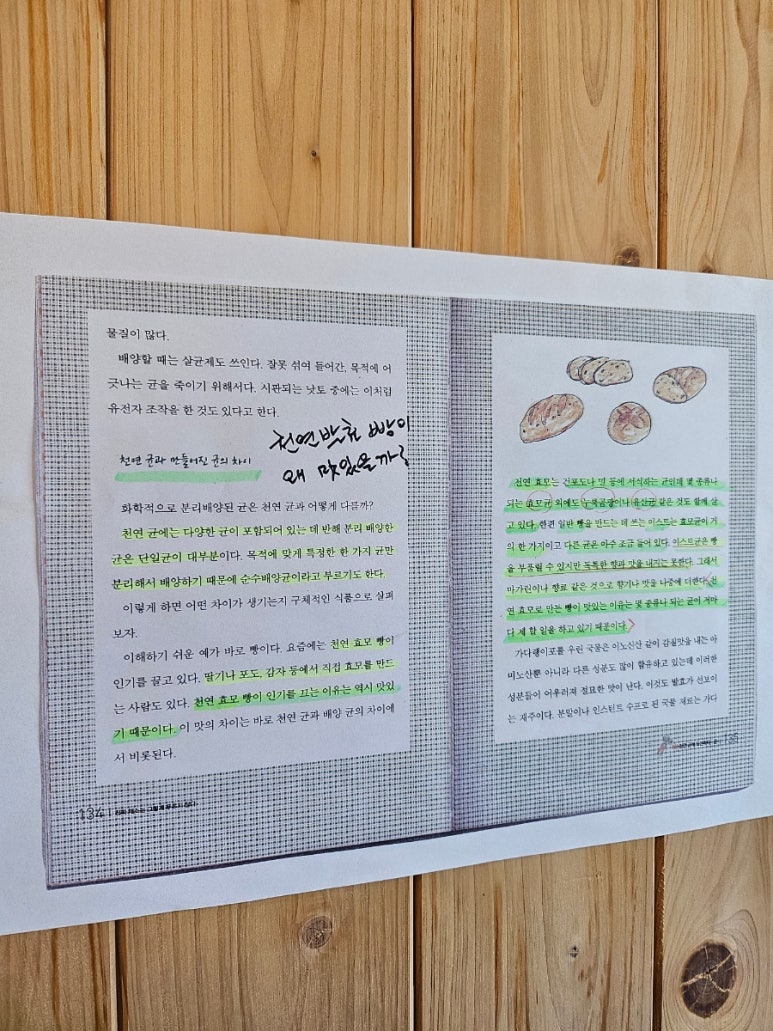 물질이 많다.
배양할 때는 살균제도 쓰인다. 잘못 섞여 들어간, 목적에 어
긋나는 균을 죽이기 위해서다. 시판되는 낫토 중에는 이처럼
유전자 조작을 한 것도 있다고 한다.
천연발효 빵이
왜 맛있을까?
천연 균과 만들어진 균의 차이
화학적으로 분리배양된 균은 천연 균과 어떻게 다를까?
천연 균에는 다양한 균이 포함되어 있는 데 반해 분리 배양한
균은 단일균이 대부분이다. 목적에 맞게 특정한 한 가지 균만
분리해서 배양하기 때문에 순수배양균이라고 부르기도 한다.
이렇게 하면 어떤 차이가 생기는지 구체적인 식품으로 살펴
보자.
이해하기 쉬운 예가 바로 빵이다. 요즘에는 천연 효모 빵이
인기를 끌고 있다. 딸기나 포도, 감자 등에서 직접 효모를 만드
는 사람도 있다. 천연 효모 빵이 인기를 끄는 이유는 역시 맛있
기 때문이다. 이 맛의 차이는 바로 천연 균과 배양 균의 차이에
서 비롯된다.
134
천연 효모는 건포도나 밀 등에 서식하는 균인데 몇 종류나
되는 효모균 외에도 누룩곰팡이나 유산균 같은 것도 함께 살
고 있다. 한편 일반 빵을 만드는 데 쓰는 이스트는 효모균이 거
의 한 가지이고 다른 균은 아주 조금 들어 있다. 이스트균은 빵
을 부풀릴 수 있지만 독특한 향과 맛을 내지는 못한다. 그래서
마가린이나 향료 같은 것으로 향기나 맛을 나중에 더한다. 천
연 효모로 만든 빵이 맛있는 이유는 몇 종류나 되는 균이 저마
다 제 할 일을 하고 있기 때문이다.
가다랭이포를 우린 국물은 이노신산 같이 감칠맛을 내는 아
미노산뿐 아니라 다른 성분도 많이 함유하고 있는데 이러한
성분들이 어우러져 절묘한 맛이 난다. 이것도 발효가 선보이
는 재주이다. 분말이나 인스턴트 수프로 된 국물 재료는 가다
135